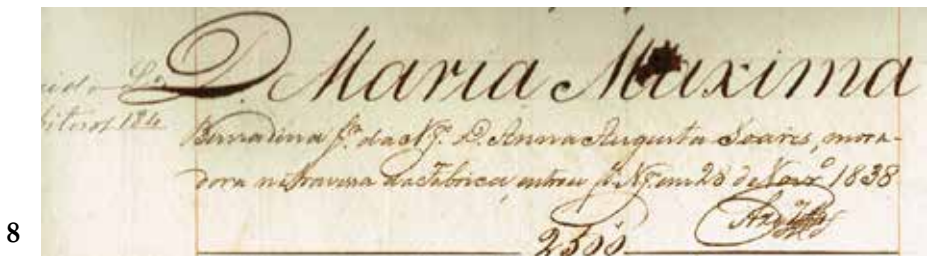 D. Maria Maxima
Bernardina f.ª da N. D. Anna Augusta Soares, mora-
dora na travessa da Fabrica, entrou p.ª N. em 28 de Nov.º 1838
2500
8